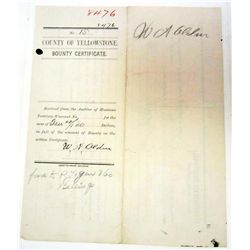 8476
8476
No. 15
COUNTY OF YELLOWSTONE.
BOUNTY CERTIFICATE.
Received from the Auditor of Montana
Territory Warrant No. for the
sum of Dollars,
in full of the amount of Bounty on the
within Certificate.
W. A. Alden
W A Alden
Billings